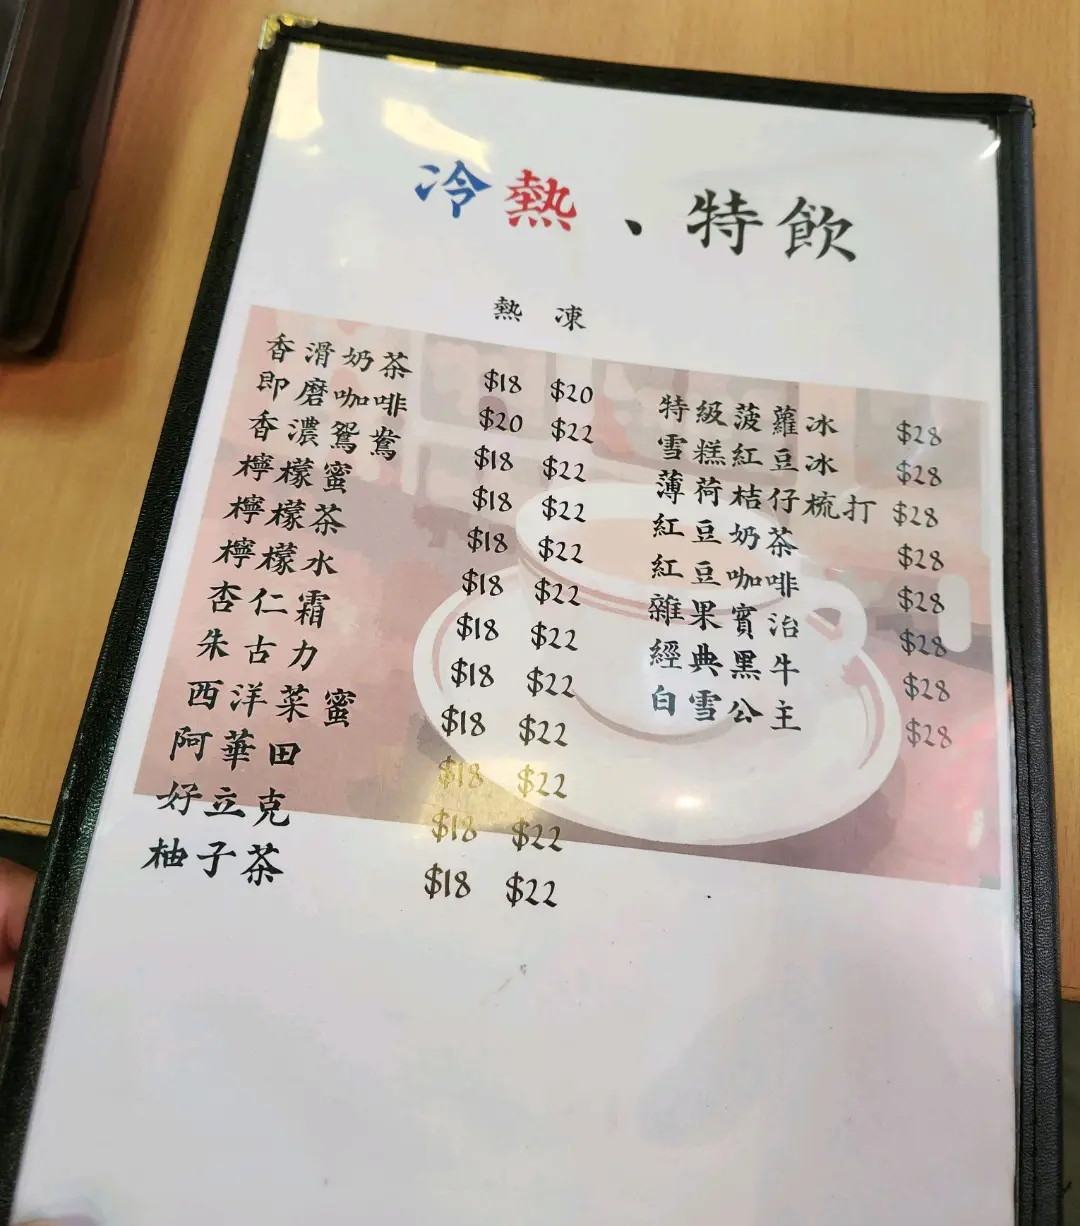 冷熱、特飲
熱 凍
香滑奶茶 $18 $20
即磨咖啡 $20 $22
香濃鴛鴦 $18 $22
檸檬蜜 $18 $22
檸檬茶 $18 $22
檸檬水 $18 $22
杏仁霜 $18 $22
朱古力 $18 $22
西洋菜蜜 $18 $22
阿華田 $18 $22
好立克 $18 $22
柚子茶 $18 $22
特級菠蘿冰 $28
雪糕紅豆冰 $28
薄荷桔仔梳打 $28
紅豆奶茶 $28
紅豆咖啡 $28
雜果賓治 $28
經典黑牛 $28
白雪公主 $28